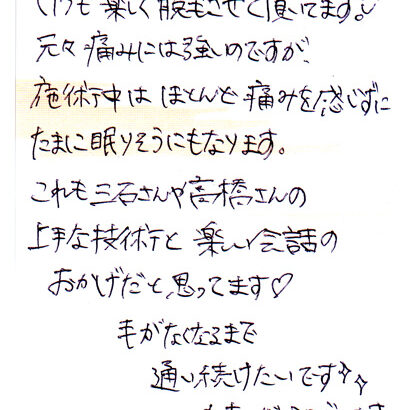 いつも楽しく脱毛させて頂いてます♪
元々痛みには強いのですが、
施術中はほとんど痛みを感じずに
たまに眠りそうにもなります。
これも三石さんや高橋さんの
上手な技術と楽しい会話の
おかげだと思ってます♡
毛がなくなるまで
通い続けたいです